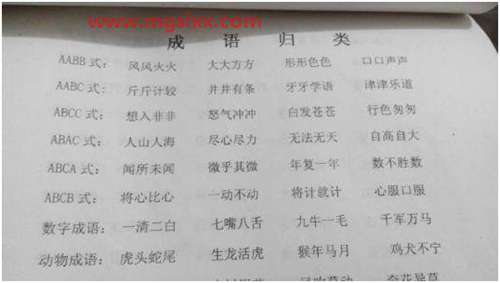 www.mgaixx.com
成语归类
AABB式： 风风火火 大大方方 形形色色 口口声声
AABC式： 斤斤计较 井井有条 牙牙学语 津津乐道
ABCC式： 想入非非 怒气冲冲 白发苍苍 行色匆匆
ABAC式： 人山人海 尽心尽力 无法无天 自高自大
ABCA式： 闻所未闻 微乎其微 年复一年 数不胜数
ABCB式： 将心比心 一动不动 将计就计 心服口服
数字成语： 一清二白 七嘴八舌 九牛一毛 千军万马
动物成语： 虎头蛇尾 生龙活虎 猴年马月 鸡犬不宁
奇花异草